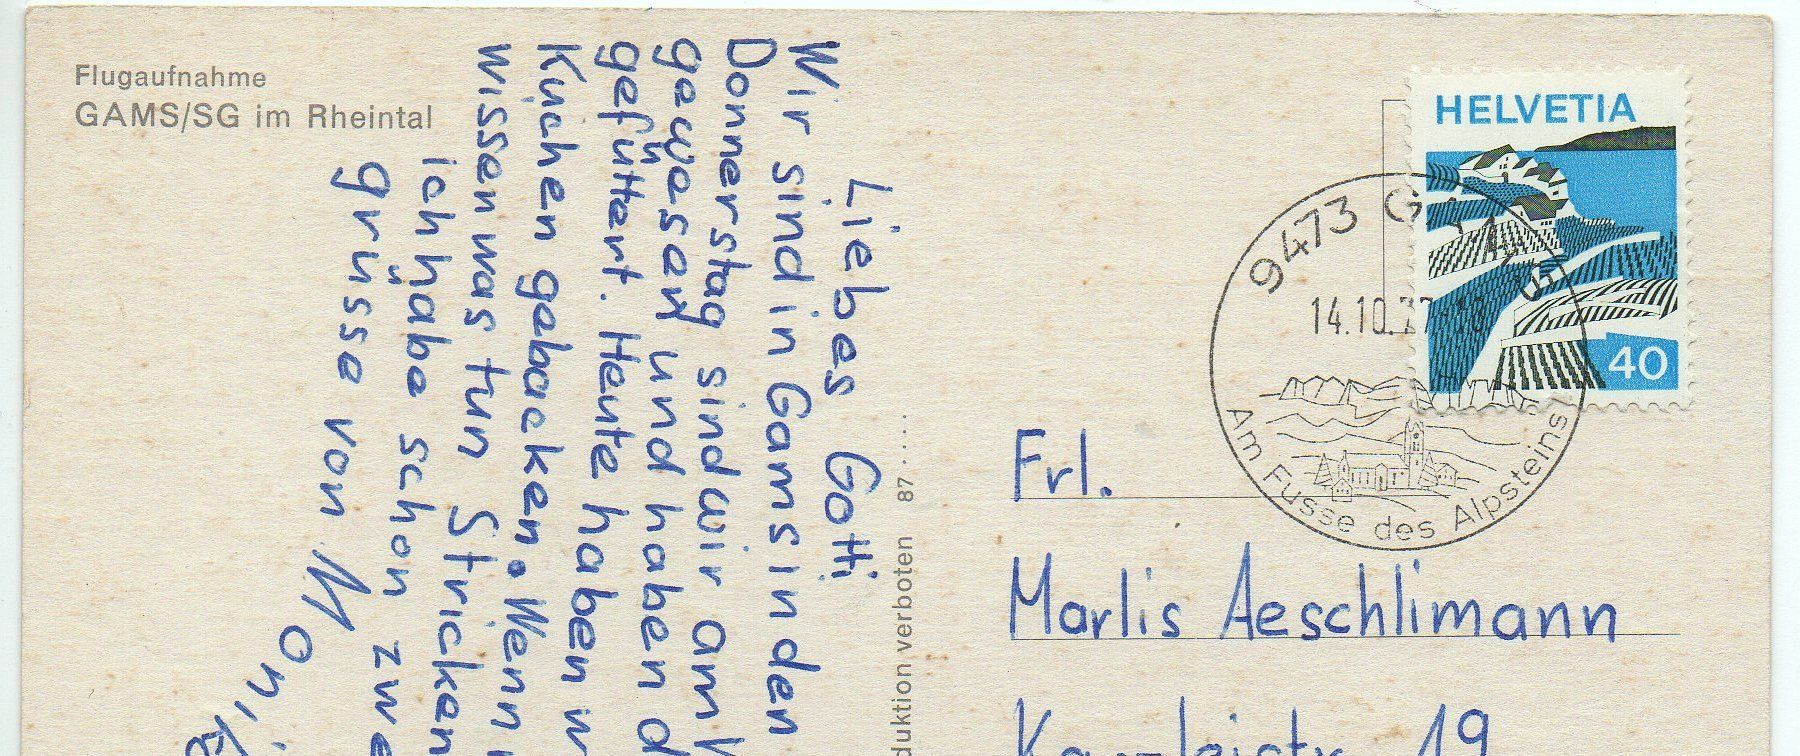 Flugaufnahme
GAMS/SG im Rheintal
Liebes Gotti
Wir sind in Gams in den
Donnerstag sind wir am
gewesen und haben
gefüttert. Heute haben
Kuchen gebacken. Wenn
wissen was tun Stricken
ich häbe schon
grüsse von
duktion verboten 87.....
HELVETIA
40
9473 GAMS
14.10.77-18
Am Fusse des Alpsteins
Frl.
Marlis Aeschlimann
19